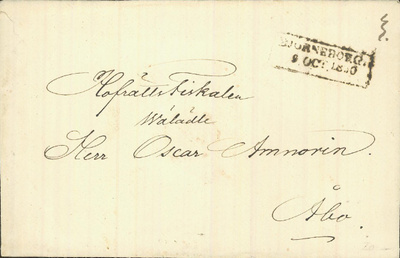 BJÖRNEBORG.
9 OCT. 1850
Hofrätts Fiskalen
Wälädle
Herr Oscar Amnorin.
Åbo.